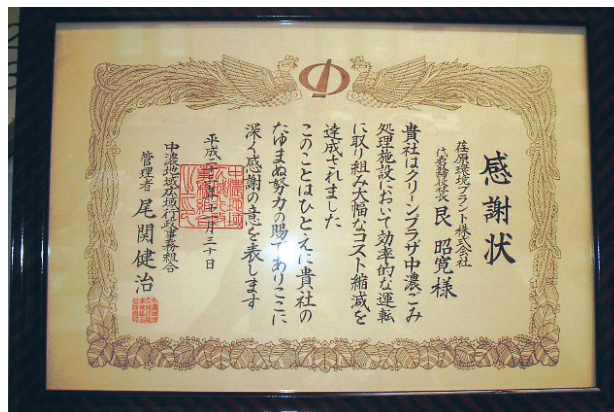 感謝状
荏原環境プラント株式会社
代表取締役社長 良 昭寛様
貴社はクリーンプラザ中濃ごみ
処理施設において効率的な運転
に取り組み大幅なコスト縮減を
達成されました
このことはひとえに貴社の
たゆまぬ努力の賜でありここに
深く感謝の意を表します
平成二十 年十 月三十日
中濃地域広域行政事務組合
管理者 尾関健治